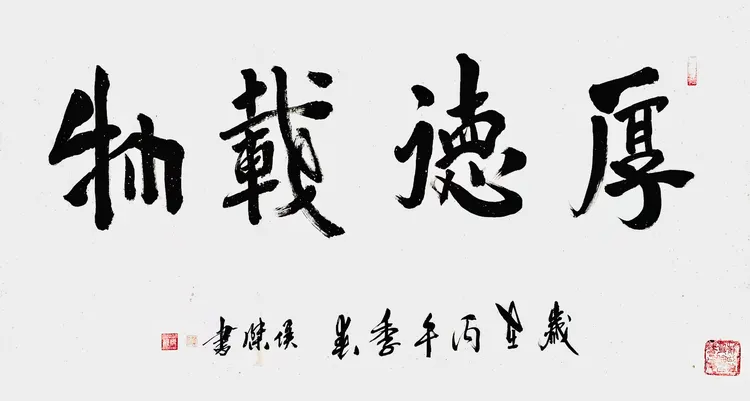 厚德載物
歲在丙午季春 侯傑書